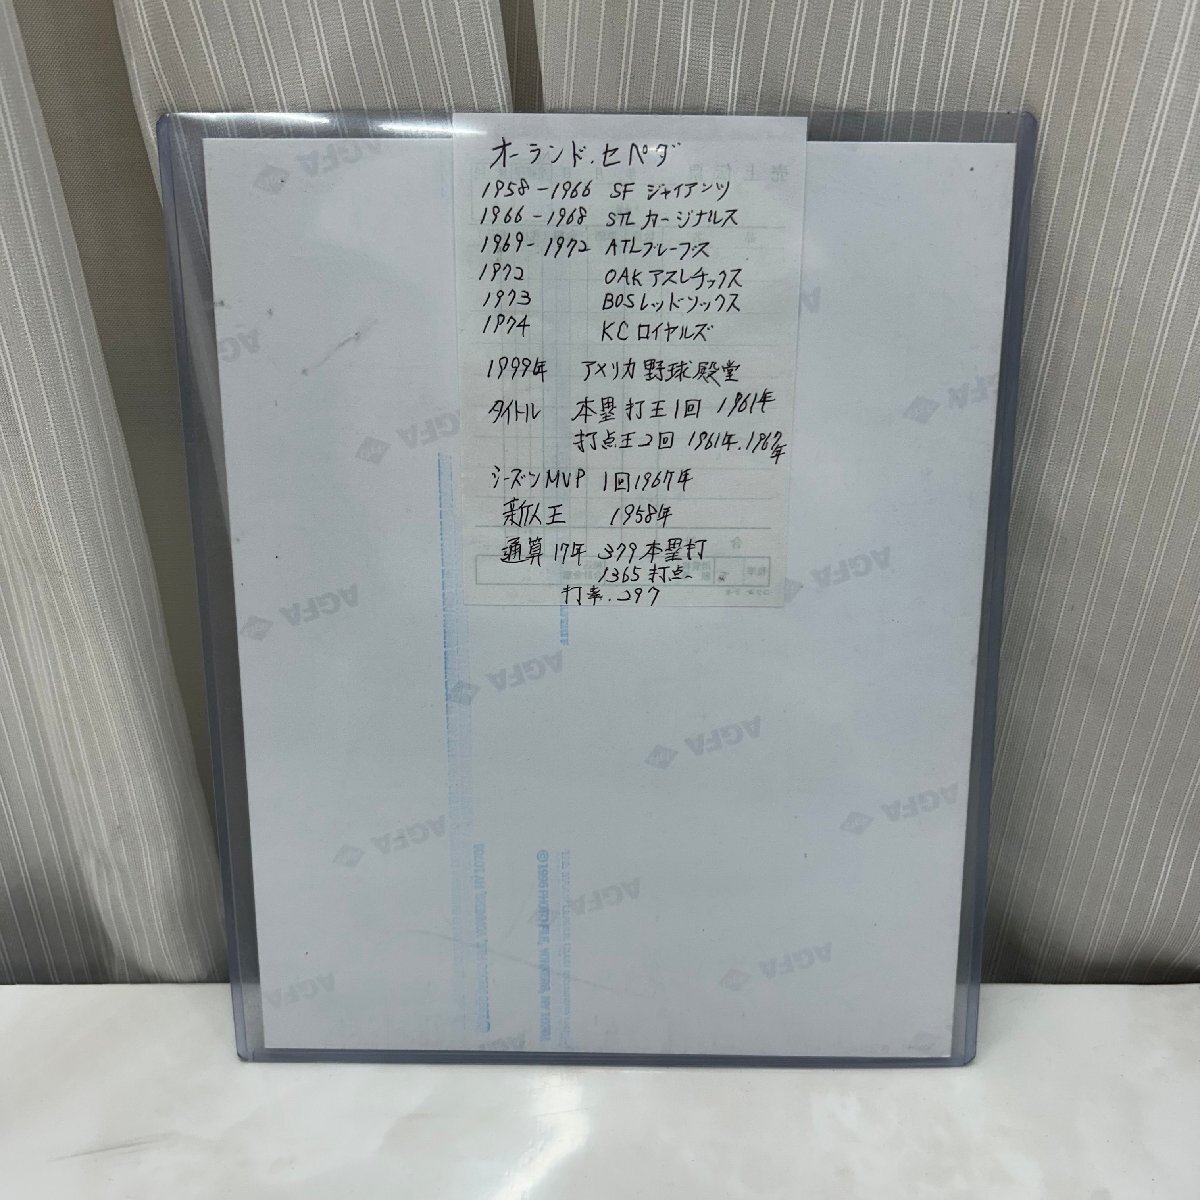 オーランド・セペダ
1958-1966 SF ジャイアンツ
1966-1968 STL カージナルス
1969-1972 ATLブレーブス
1972 OAKアスレチックス
1973 BOSレッドソックス
1974 KCロイヤルズ
1999年 アメリカ野球殿堂
タイトル 本塁打王1回 1961年
打点王2回 1961年.1967年
シーズンMVP 1回1967年
新人王 1958年
通算17年 379本塁打
1365打点
打率.297
売上伝票
合
AGFA
AGFA
AGFA
AGFA
AGFA
AGFA
AGFA
AGFA
AGFA
AGFA
AGFA
AGFA
© 1996 PHOTO FILE,